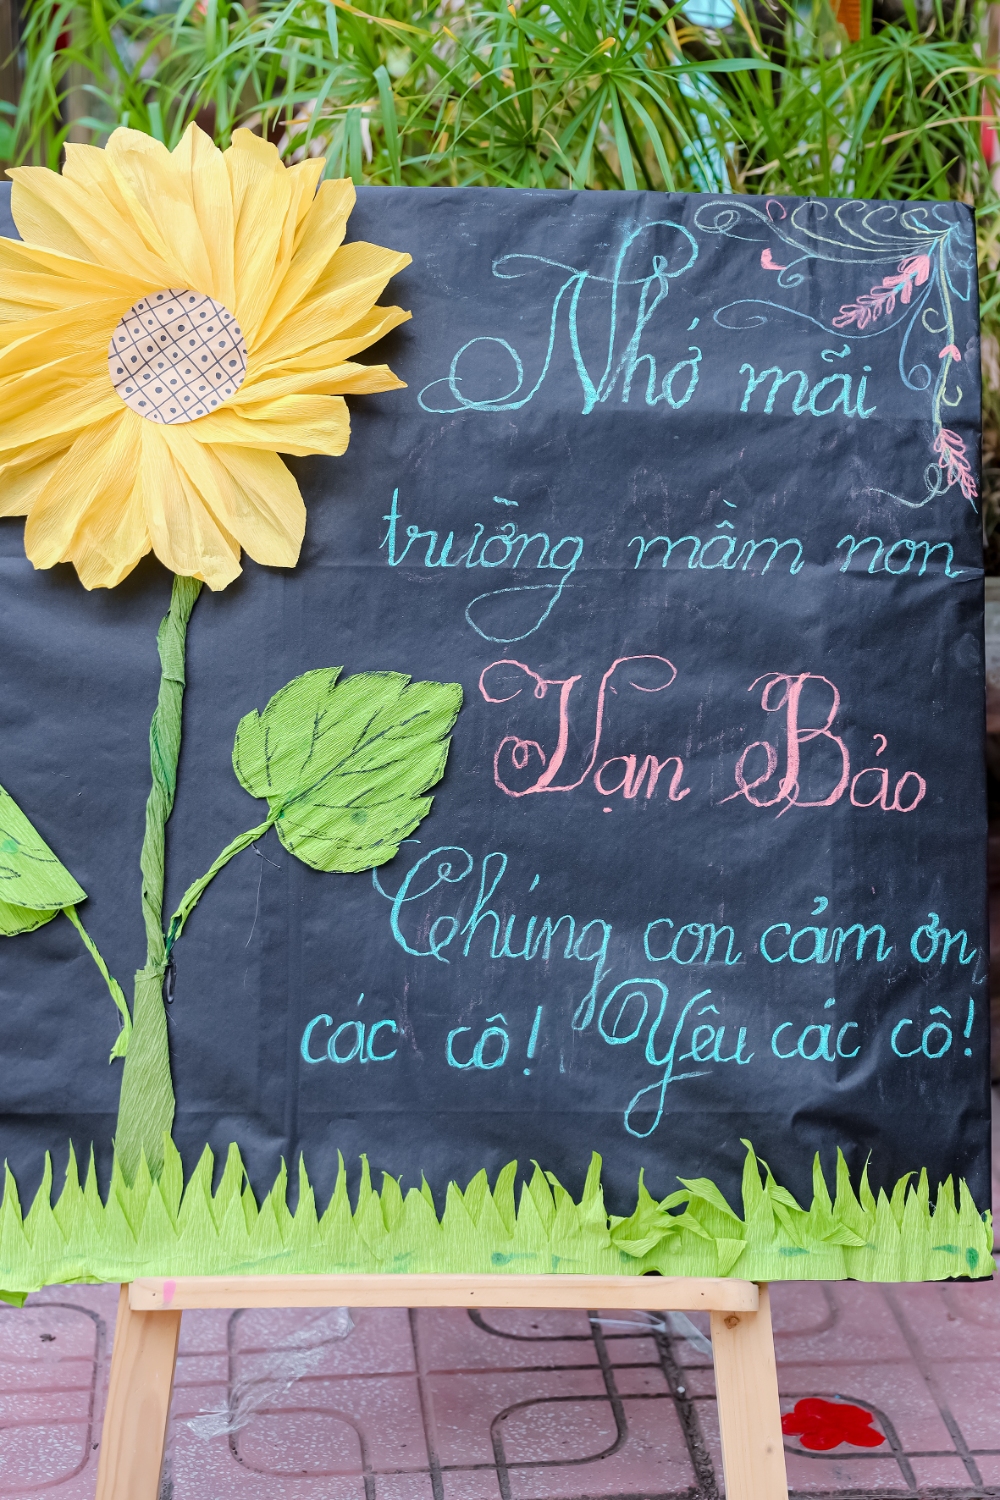 Nhớ mãi
trường mầm non
Vạn Bảo
Chúng con cảm ơn
các cô! Yêu các cô!